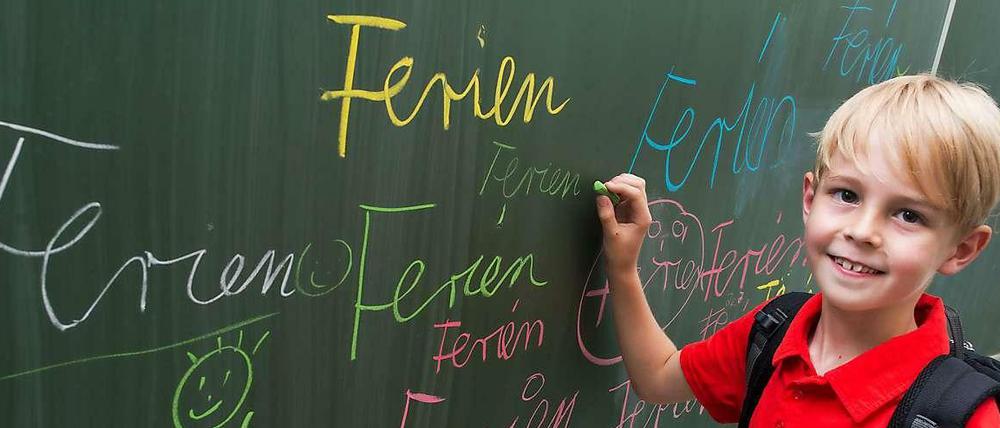 Ferien
Ferien
Ferien
Ferien
Ferien
Ferien
Ferien
Ferien
Ferien